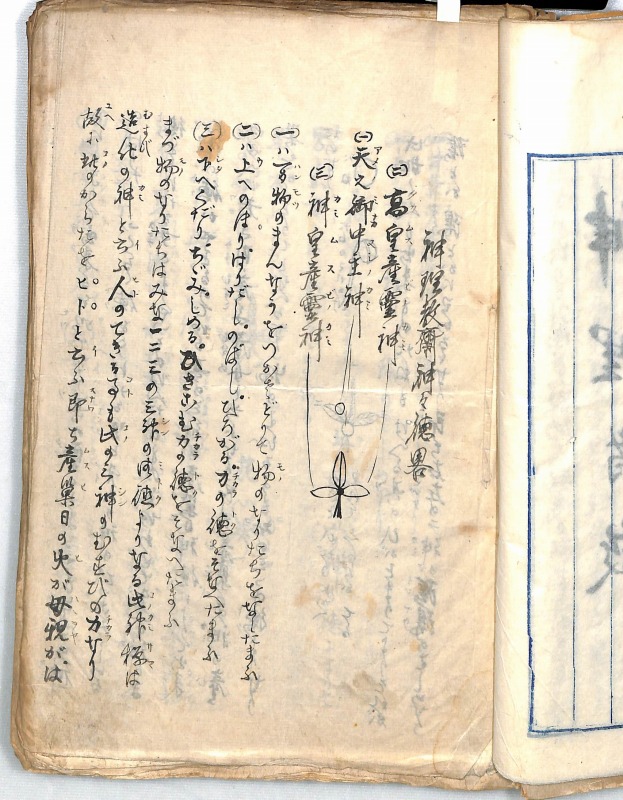 神理教 神々徳略
(二)高皇産霊神
(一)天之御中主神
(三)神皇産霊神
(一)ハ万物のまんなかをつかさどりて物のなりたちをなしたまふ
(二)ハ上へのぼりはりだし。のばし。ひろがる。力の徳をそなへたまふ
(三)ハ下へくだり。ちぢみしめる。ひきこむ力の徳をそなへたまふ
まづ物のなりたちはみな一二三の三神の御徳よりなる此神様は
造化の神と云ふ人のできる事も此の三神のむすびの力なり
故に此のからだをヒトと云ふ即ち産巣日の火が母親がは